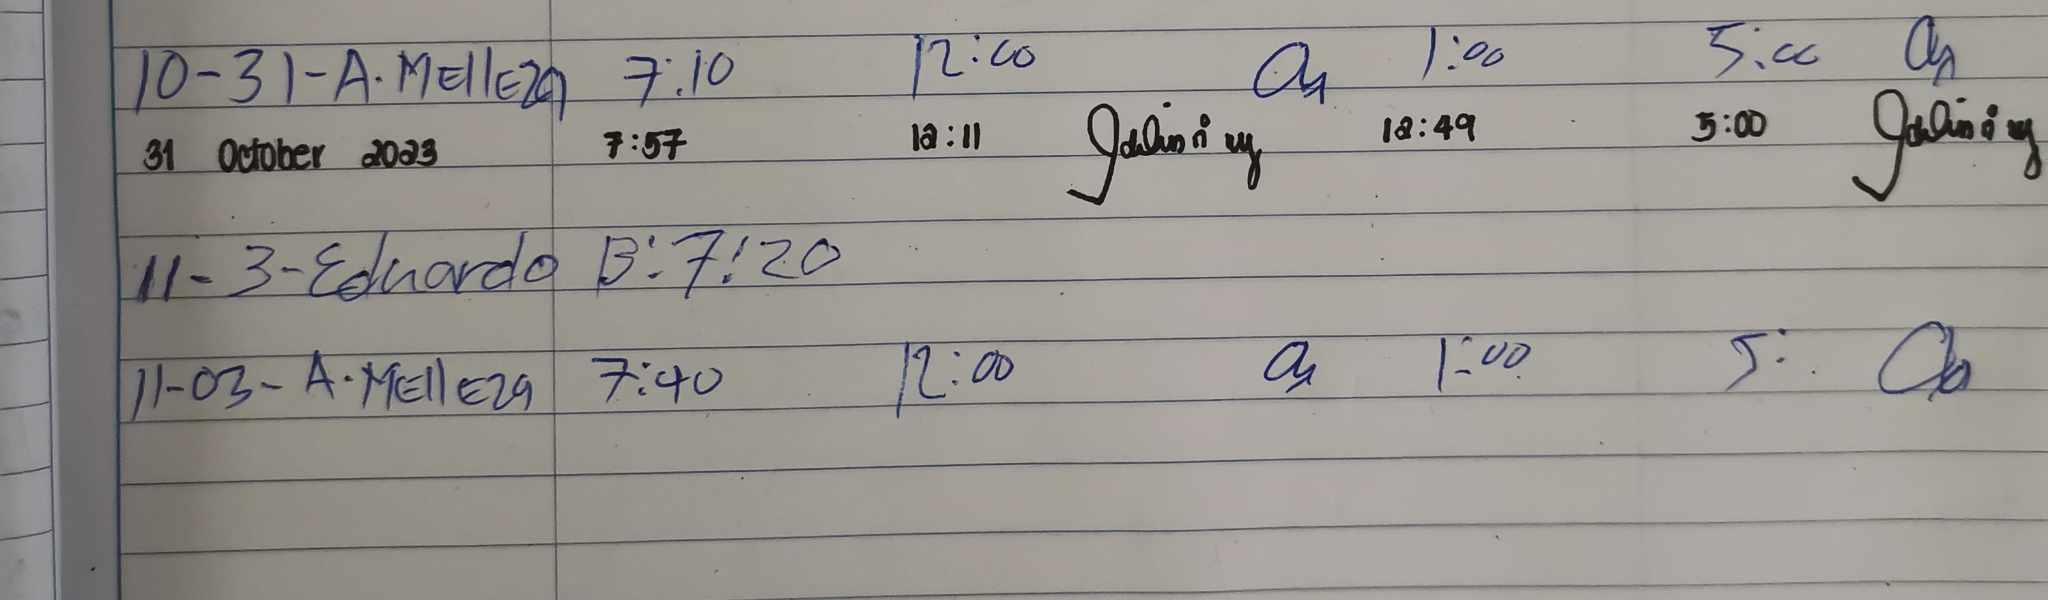 10-31-A.MEllEza 7:10 12:00 1:00 5:00
31 October 2023 7:57 12:11 12:49 5:00
11-3-Eduardo B: 7:20
11-03-A.MEllEza 7:40 12:00 1:00 5: